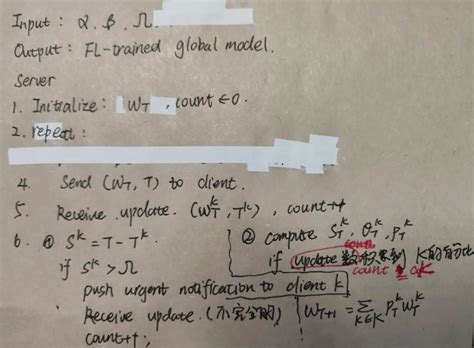 Input : α, β, Ω.
Output : FL-trained global model.
Server
1. Initialize : W_T , count ← 0.
2. repeat :
4. Send (W_T, T) to client.
5. Receive update. (W_T^k, T^k), count++
6. ① S^k = T - T^k.
if S^k > Ω
push urgent notification to client k
Receive update. (不完全的)
count++;
② compute S_T^k, θ_T^k, P_T^k
if update 数 K的百分比
count
W_{T+1} = Σ_{k∈K} P_T^k W_T^k